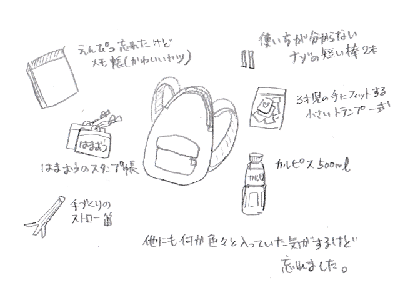 えんぴつ忘れたけど
メモ帳(かわいいヤツ)
使い方が分からない
ナゾの短い棒2本
3才児の手にフィットする
小さいトランプ一式
はまおう
はまおうのスタンプ帳
カルピス500ml
手づくりの
ストロー笛
他にも何か色々と入っていた気がするけど
忘れました。